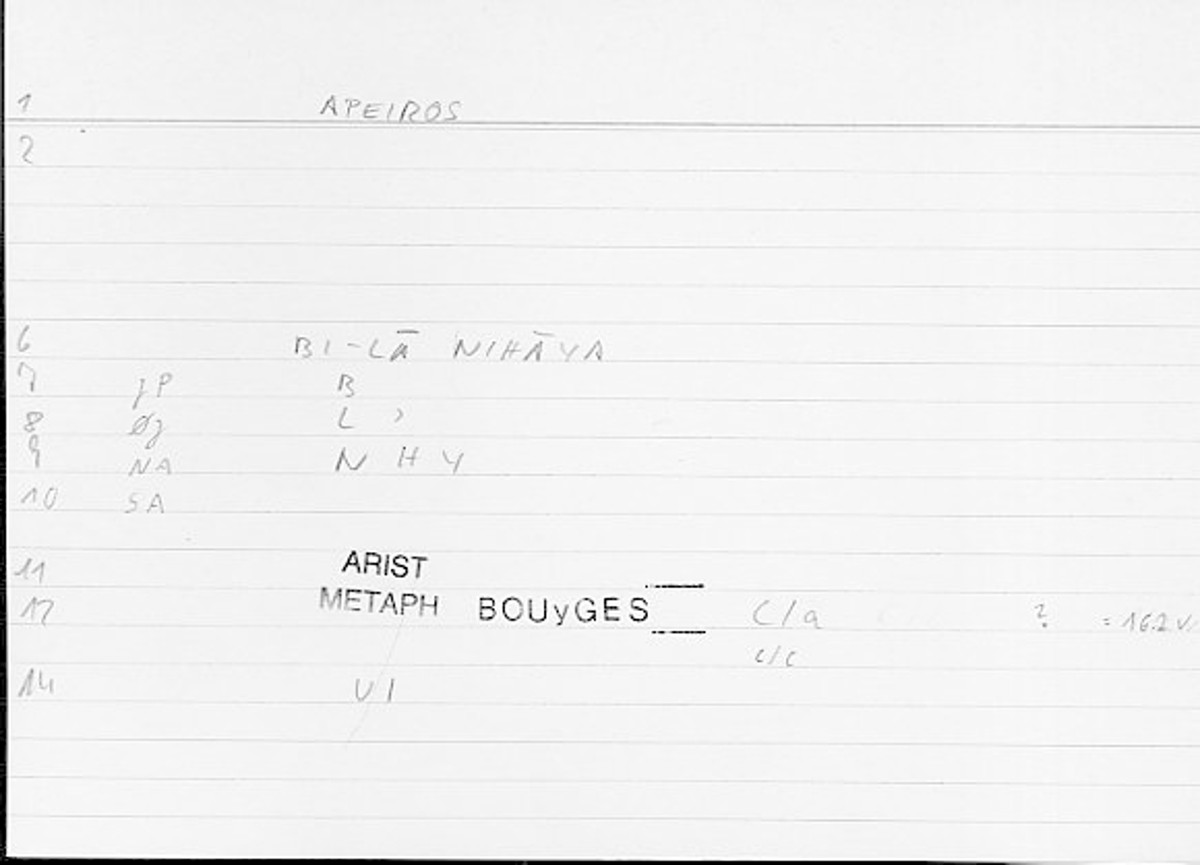 1 APEIROS
2
6 BI-LĀ NIHĀYA
7 jP B
8 Øj L ʾ
9 NA N H Y
10 SA
11 ARIST
12 METAPH BOUyGES C/a ? = 162
c/c
14 VI